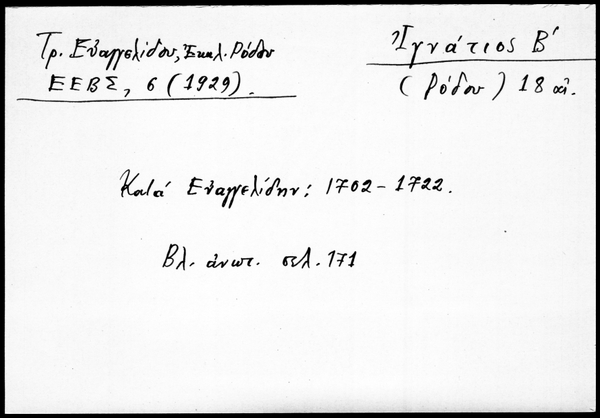 Τρ. Εὐαγγελίδου, Ἐκκλ. Ρόδου
ΕΕΒΣ, 6 (1929).
Ἰγνάτιος Β΄
(Ρόδου) 18 αἰ.
Κατά Εὐαγγελίδην: 1702-1722.
Βλ. ἀνωτ. σελ. 171